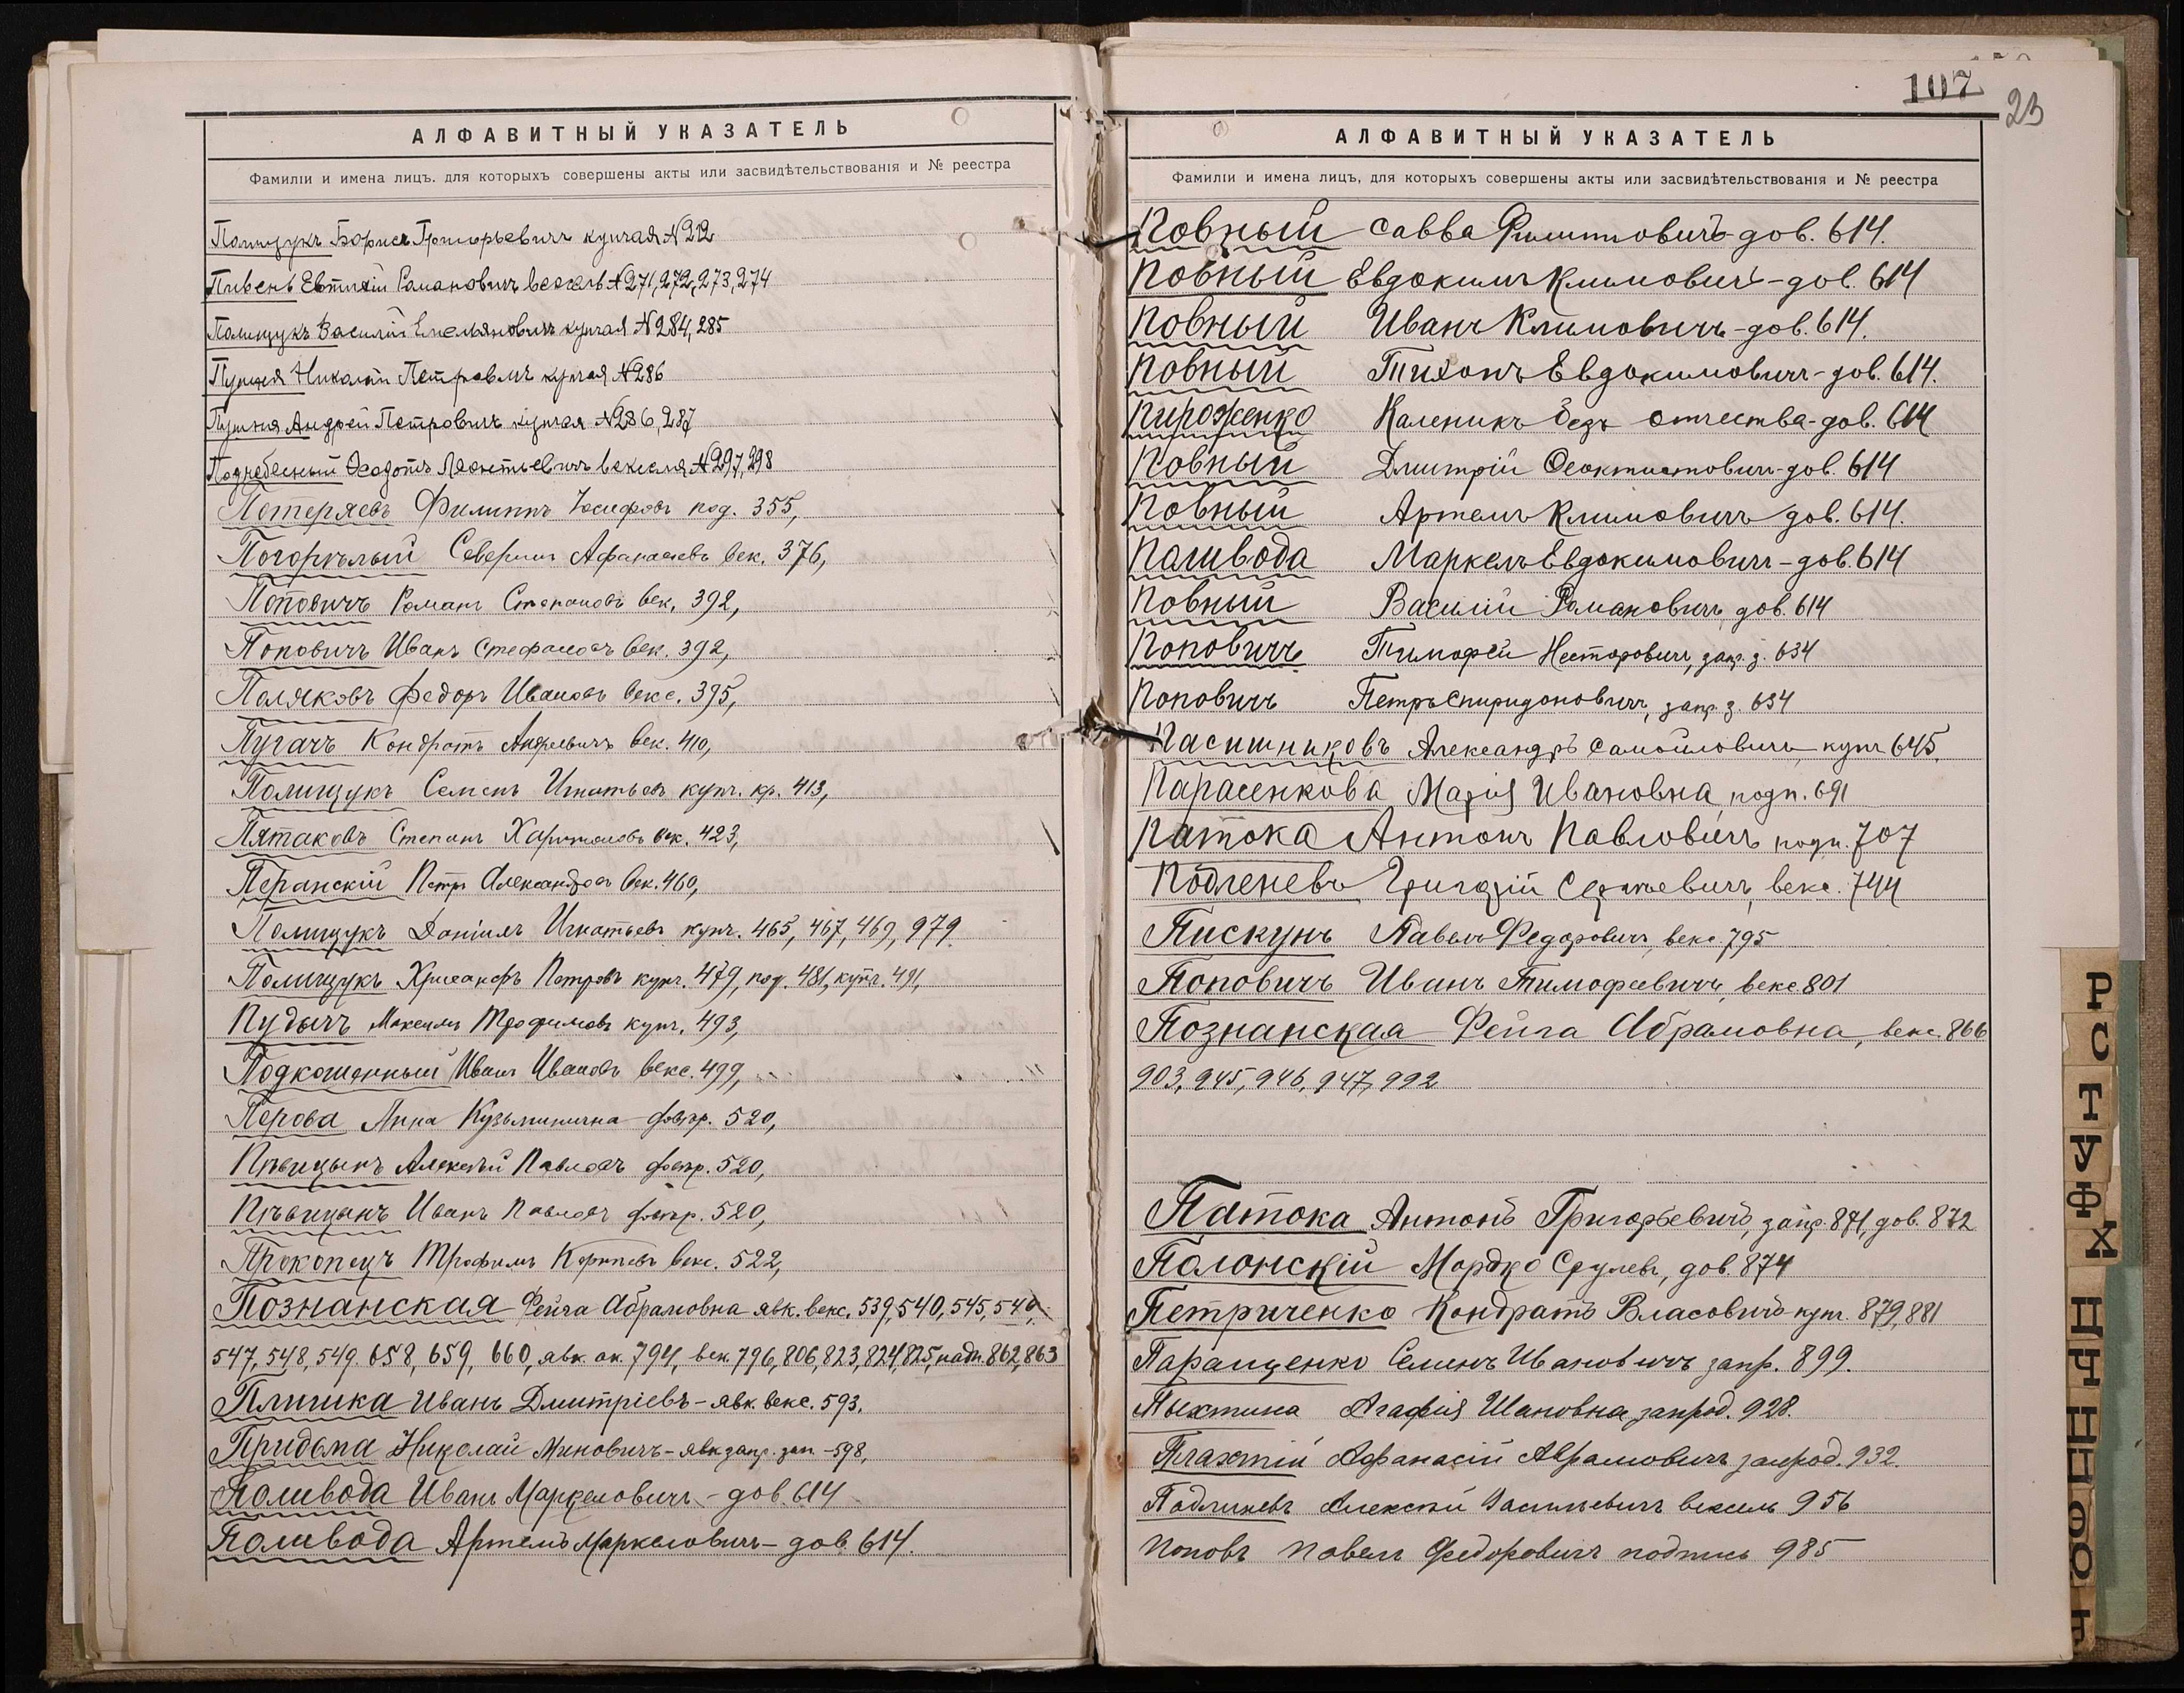 АЛФАВИТНЫЙ УКАЗАТЕЛЬ
Фамиліи и имена лицъ, для которыхъ совершены акты или засвидѣтельствованія и № реестра
Полищукъ Борисъ Григорьевичъ купчая № 212
Пивень Евтихій Романовичъ вексель № 271, 272, 273, 274
Полищукъ Василій Емельяновичъ купчая № 284, 285
Николай Петровичъ купчая № 286
Андрей Петровичъ купчая № 286, 287
Поднебесный Федотъ Леонтьевичъ векселя № 297, 298
Потеряевъ Филиппъ Іосифовъ под. 355,
Погорѣлый Северинъ Афанасьевъ век. 376,
Поповичъ Романъ Степановъ век. 392,
Поповичъ Иванъ Стефановъ век. 392,
Поляковъ Федоръ Ивановъ векс. 395,
Пугачъ Кондратъ Андреевичъ век. 410,
Полищукъ Семенъ Игнатьевъ купч. кр. 413,
Пятаковъ Степанъ Харитоновъ век. 423,
Перанскій Петръ Александровъ век. 460,
Полищукъ Даніилъ Игнатьевъ купч. 465, 467, 469, 979
Полищукъ Хрисанфъ Петровъ купч. 479, под. 481, купч. 491,
Пудычъ Максимъ Трофимовъ купч. 493,
Подкошенный Иванъ Ивановъ векс. 499,
Перова Анна Кузьминична 520,
Пѣвицынъ Алексѣй Павловъ 520,
Пѣвицынъ Иванъ Павловъ 520,
Прокопецъ Трофимъ Корнѣевъ векс. 522,
Познанская Фейга Абрамовна явк. векс. 539, 540, 545, 546,
547, 548, 549. 658, 659, 660, явк. ак. 794, век. 796, 806, 823, 824, 825, надп. 862, 863
Плишка Иванъ Дмитріевъ - явк. векс. 593.
Придома Николай Миновичъ - явк. запр. зап. - 598,
Поливода Иванъ Маркеловичъ - дов. 614
Поливода Артемъ Маркеловичъ - дов. 614.
107
23
АЛФАВИТНЫЙ УКАЗАТЕЛЬ
Фамиліи и имена лицъ, для которыхъ совершены акты или засвидѣтельствованія и № реестра
Повный Савва Филипповичъ дов. 614.
Повный Евдокимъ Климовичъ - дов. 614
Повный Иванъ Климовичъ - дов. 614.
Повный Тихонъ Евдокимовичъ - дов. 614.
Пироженко Каленикъ безъ отчества - дов. 614
Повный Дмитрій Феоктистовичъ - дов. 614
Повный Артемъ Климовичъ дов. 614.
Паливода Маркелъ Евдокимовичъ - дов. 614
Повный Василій Романовичъ, дов. 614
Поповичъ Тимофей Несторовичъ, запр. з. 634
Поповичъ Петръ Спиридоновичъ, запр. з. 634
Пасишниковъ Александръ Самойловичъ купч 645.
Парасенкова Марія Ивановна, подп. 691
Патока Антонъ Павловичъ, подп. 707
Подленевъ Григорій Сергѣевичъ, векс. 744
Пискунъ Павелъ Федоровичъ, векс 795
Поповичъ Иванъ Тимофеевичъ, векс 801
Познанская Фейга Абрамовна, векс. 866
903, 945, 946, 947, 992
Патока Антонъ Григорьевичъ, запр. 871, дов. 872
Полонскій Мордко Срулевъ, дов. 874
Петриченко Кондратъ Власовичъ купч. 879, 881
Паращенко Семенъ Ивановичъ запр. 899.
Агафія Ивановна запрод. 928.
Плахтій Афанасій Аврамовичъ запрод. 932.
Подлиневъ Алексѣй Васильевичъ вексель 956
Поповъ Павелъ Федоровичъ подпись 985
Р
С
Т
У
Ф
Х
Ц
Ч